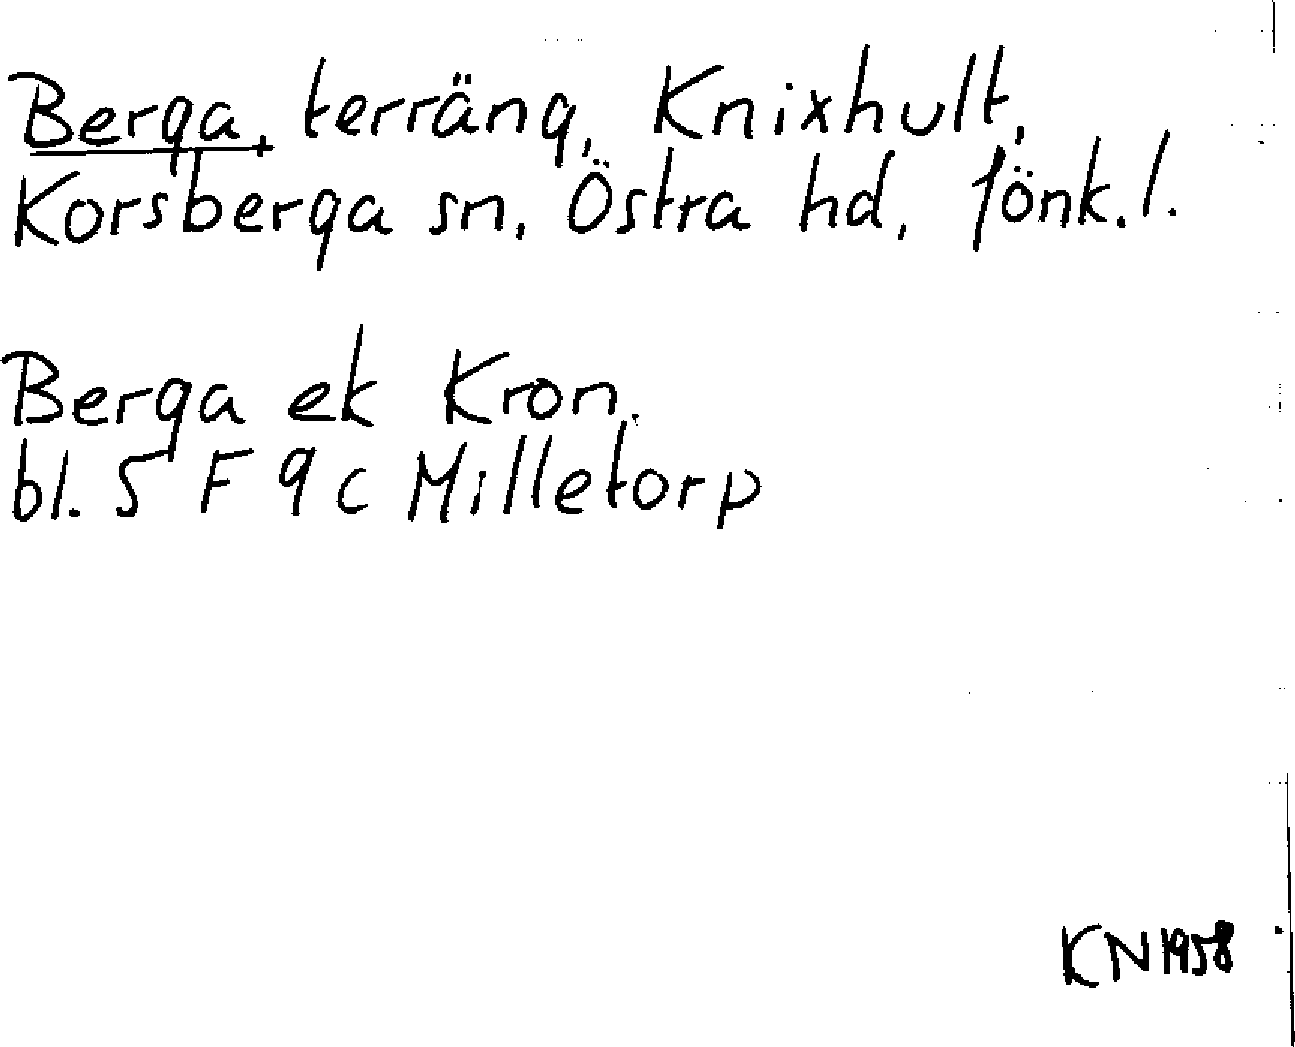 Berga, terräng, Knixhult,
Korsberga sn, Östra hd, Jönk. l.
Berga ek Kron.
bl. 5 F 9 c Milletorp
KN 1958